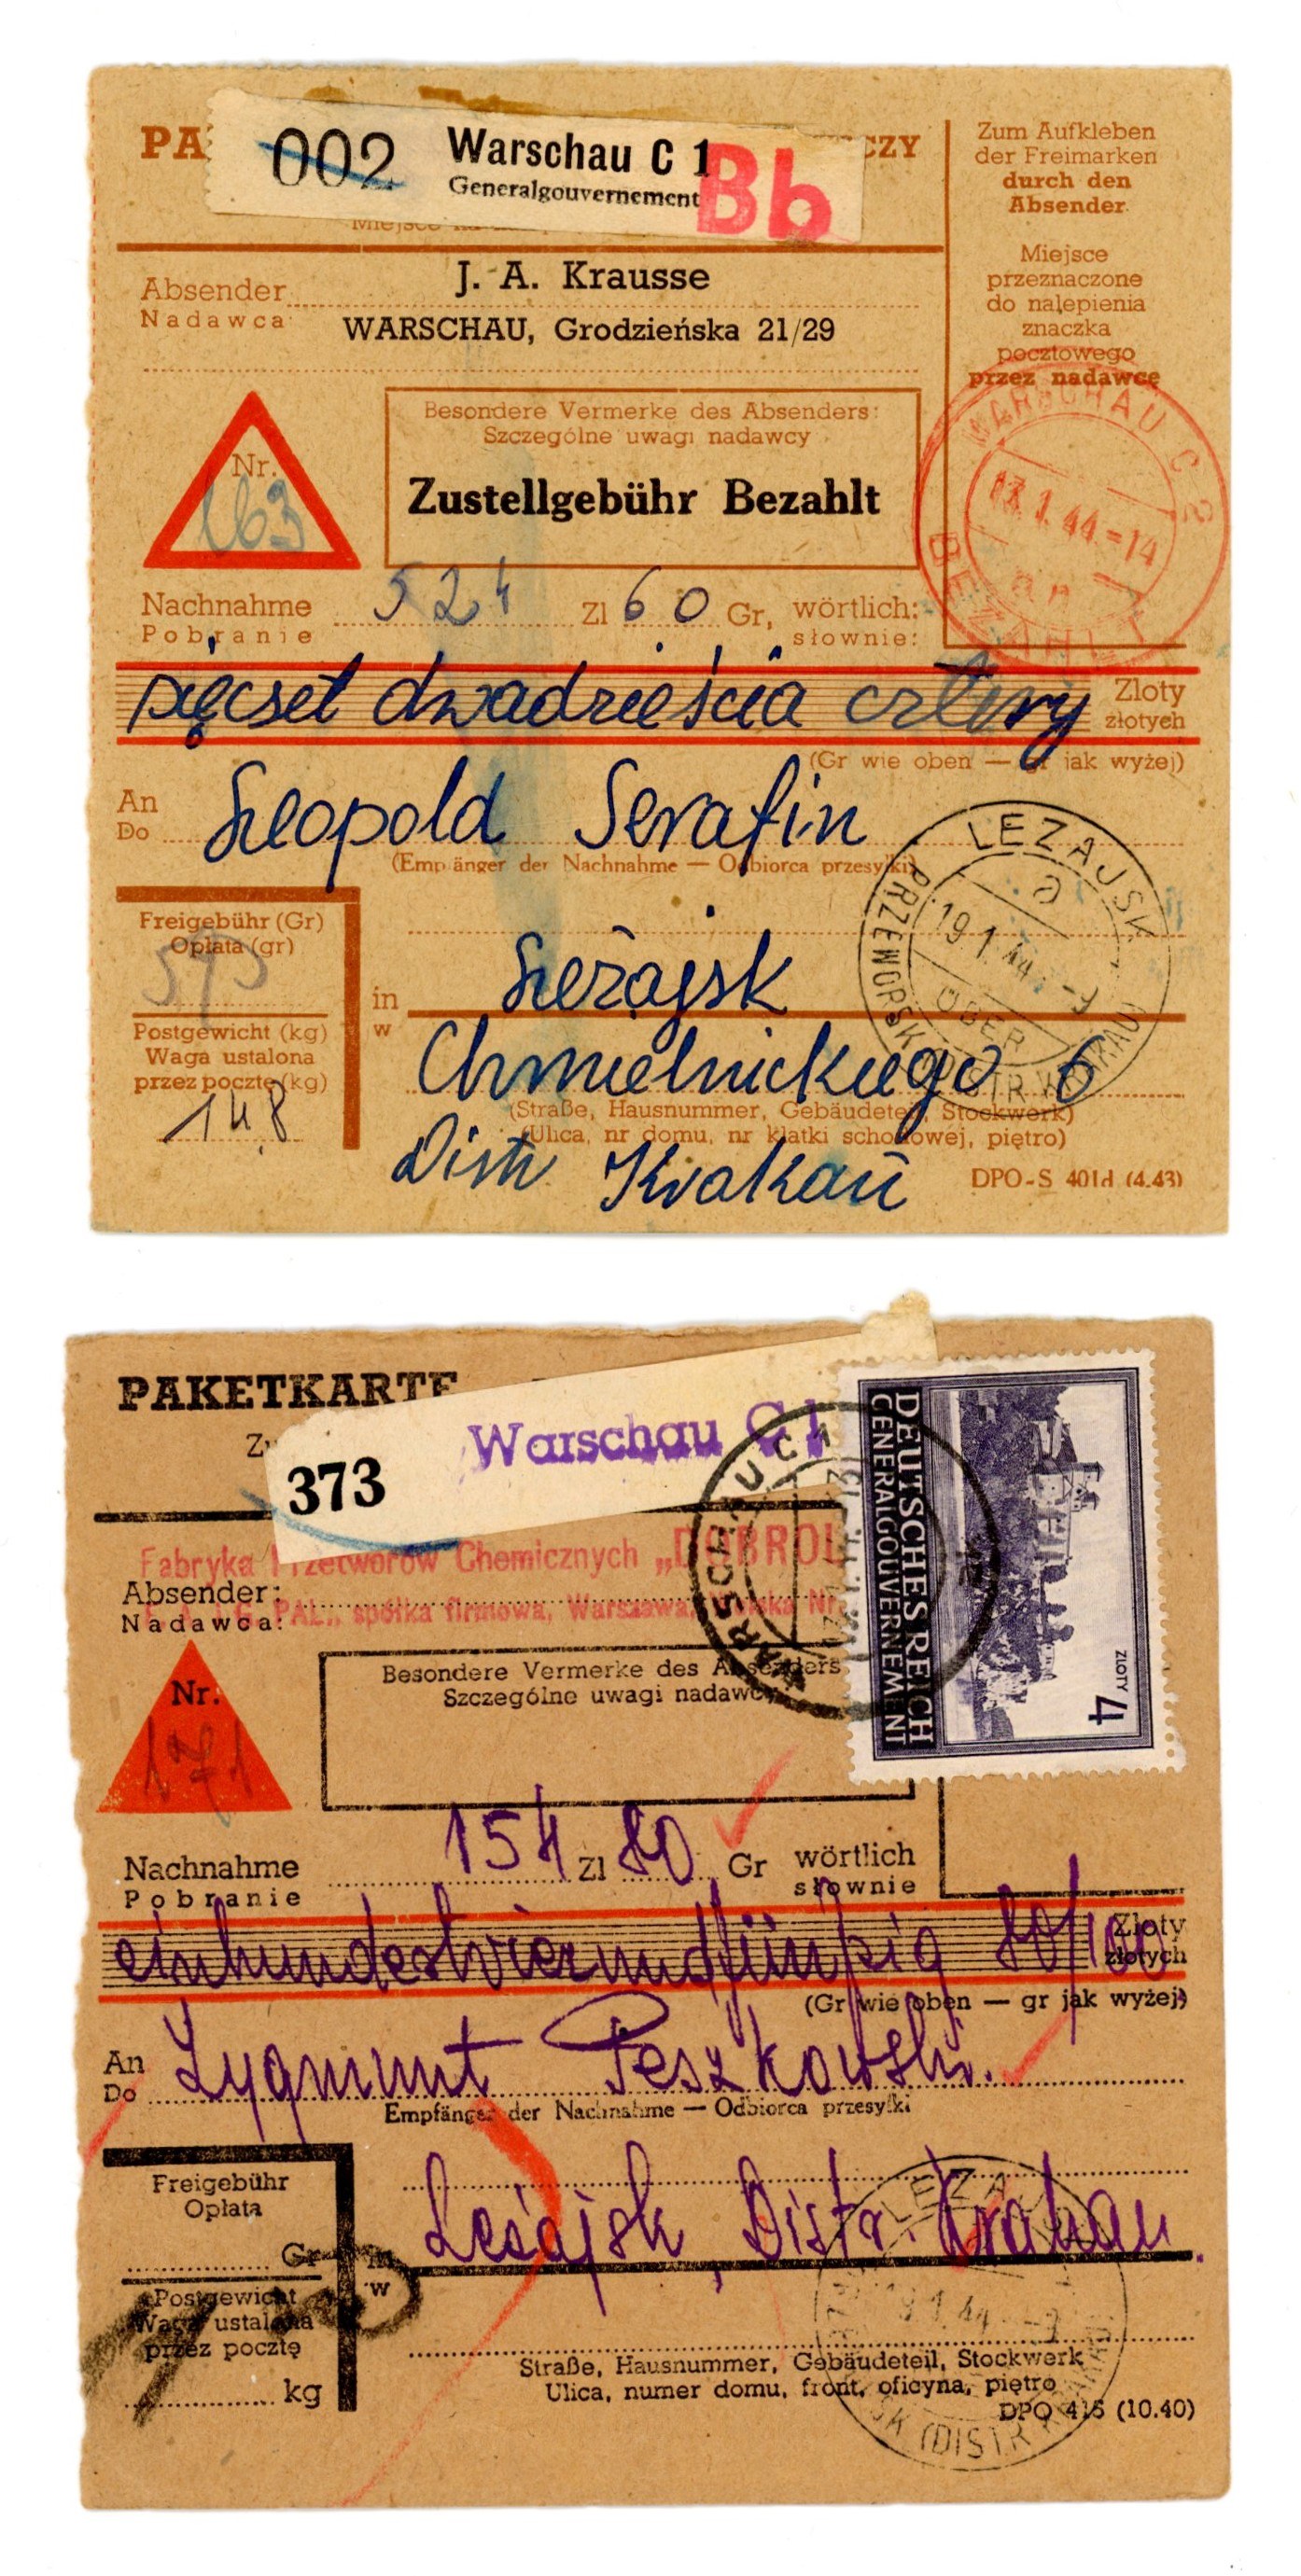 002 Warschau C 1
Generalgouvernement Bb
PA CZY
Absender J. A. Krausse
Nadawca WARSCHAU, Grodzieńska 21/29
Zum Aufkleben
der Freimarken
durch den
Absender
Miejsce
przeznaczone
do nalepienia
znaczka
pocztowego
przez nadawcę
WARSCHAU C2
13.1.44.-14
BEZAHLT
Nr.
163
Besondere Vermerke des Absenders:
Szczególne uwagi nadawcy
Zustellgebühr Bezahlt
Nachnahme 524 Zl 60 Gr, wörtlich:
Pobranie słownie:
pięćset dwadzieścia cztery Zloty
złotych
(Gr wie oben — gr jak wyżej)
An Leopold Serafin
Do
(Empfänger der Nachnahme — Odbiorca przesyłki)
LEZAJSK
a
19.1.44.-9
ÜBER
PRZEWORSK (DISTR. KRAKAU)
Freigebühr (Gr)
Opłata (gr)
595
Postgewicht (kg)
Waga ustalona
przez pocztę (kg)
14,8
in Leżajsk
w
Chmielnickiego 6
(Straße, Hausnummer, Gebäudeteil, Stockwerk)
(Ulica, nr domu, nr klatki schodowej, piętro)
Distr Krakau
DPO-S 401d (4.43)
PAKETKARTE
Zu
373 Warschau C1
WARSCHAU C1
DEUTSCHES REICH
GENERALGOUVERNEMENT
4 ZLOTY
Fabryka Przetworów Chemicznych „DOBROL
Absender:
Nadawca:
PAL„ spółka firmowa, Warszawa, Wolska Nr.
Nr.
171
Besondere Vermerke des Absenders
Szczególne uwagi nadawcy
Nachnahme 154 Zl 80 Gr wörtlich
Pobranie słownie
einhundertvierundfünfzig 80/100 Zloty
złotych
(Gr wie oben — gr jak wyżej)
An Zygmunt Peszkowski.
Do
Empfänger der Nachnahme — Odbiorca przesyłki
Freigebühr
Opłata
Gr
Postgewicht
Waga ustalona
przez pocztę
kg
in
w
Leżajsk, Distr. Krakau.
LEZAJSK
19.1.44.-9
SK (DISTR. KRAKAU)
Straße, Hausnummer, Gebäudeteil, Stockwerk
Ulica, numer domu, front, oficyna, piętro
DPO 415 (10.40)